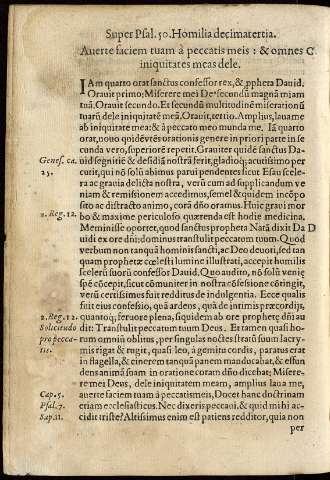 Super Psal. 50. Homilia decimatertia.
Averte faciem tuam à peccatis meis : & omnes C.
iniquitates meas dele.
IAm quarto orat sanctus confessor rex, & ꝓpheta David.
Oravit primo; Miserere mei De⁹ secundū magnā miam
tuā. Oravit secundo. Et secundū multitudinē miserationū
tuarū dele iniquitatē meā. Oravit, tertio. Amplius, lava me
ab iniquitate mea: & à peccato meo munda me. Iā quarto
orat, noto quidē vt ēs orationes genere in priori parte in se
cunda vero, superiorē repetit. Graviter quidē sanctus Da-
Genes. ca. uid segnitiē & desidiā nostrā ferit, gladioq; acutissimo per
25. cutit, qui nō solū abimus parui pendentes sicut Esau scele-
ra ac gravia delicta nostra, verū cum ad supplicandum ve
niam & remissionem accedimus, semel & quidem incōpo
sito ac distracto animo, corā dño oramus. Huic gravi mor
2. Reg. 12. bo & maxime periculoso quærenda est hodie medicina.
Meminisse oportet, quod sanctus propheta Natā dixit Da D
uidi ex ore dñi; dominus transtulit peccatum tuum. Quod
verbum non tanquā hominis sancti, ac Deo deuoti, sed tan
quam prophetæ cœlesti lumine illustrati, accepit humilis
scelerū suorū confessor Dauid. Quo audito, nō solū veniæ
spē cōcepit, sicut cōmuniter in nostra cōfessione cōtingit,
verū certissimus fuit redditus de indulgentia. Ecce qualis
fuit eius confessio, quā ardens, quā de intimis præcordijs,
2. Reg. 12. quantoq; feruore plena, siquidem ab ore prophetę dñi au
Soliciudo dit: Transtulit peccatum tuum Deus. Et tamen quasi ho-
pro pecca- rum omniū oblitus, per singulas noctes stratū suum lacry-
tis. mis rigat & rugit, quasi leo, à gemitu cordis, paratus erat
in flagella, & cinerem tanquā panem manducabat, & effun
dens animā suam in oratione coram dño dicebat; Misere-
re mei Deus, dele iniquitatem meam, amplius laua me,
Cap. 5. auerte faciem tuam à peccatis meis, Docet hanc doctrinam
Psal. 7. etiam ecclesiasticus. Nec dixeris peccaui, & quid mihi ac-
Sap. 11. cidit triste? Altissimus enim est patiens redditor, quia non
per